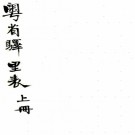 粵省驛里表上冊